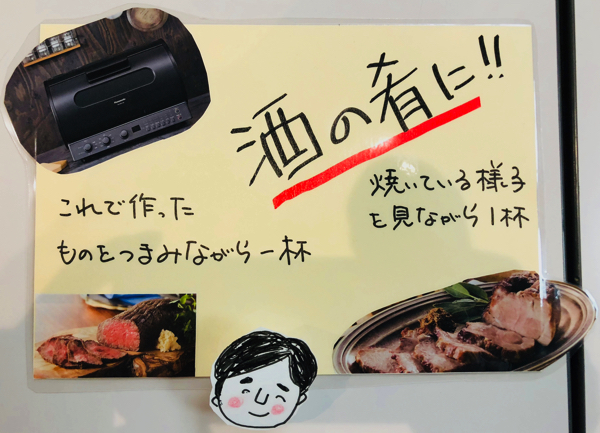 酒の肴に!!
焼いている様子
を見ながら1杯
これで作った
ものをつまみながら一杯